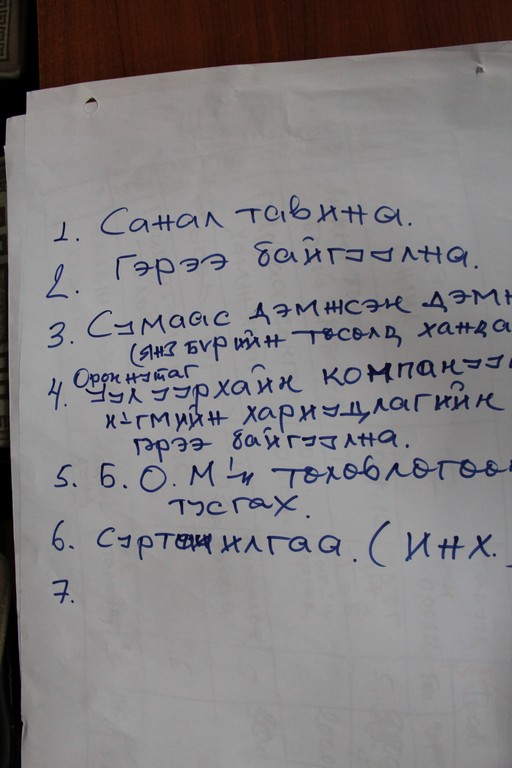 1. Санал тавина.
2. Гэрээ байгуулна.
3. Сумаас дэмжсэн дэм
(янз бүрийн төсөлд ханда
Орон нутаг
4. уул уурхайн компан
нэгмийн хариуцлагийн
гэрээ байгуулна.
5. Б. О. М
тусгах.
6. Сурталчилгаа. (Инх.
7.